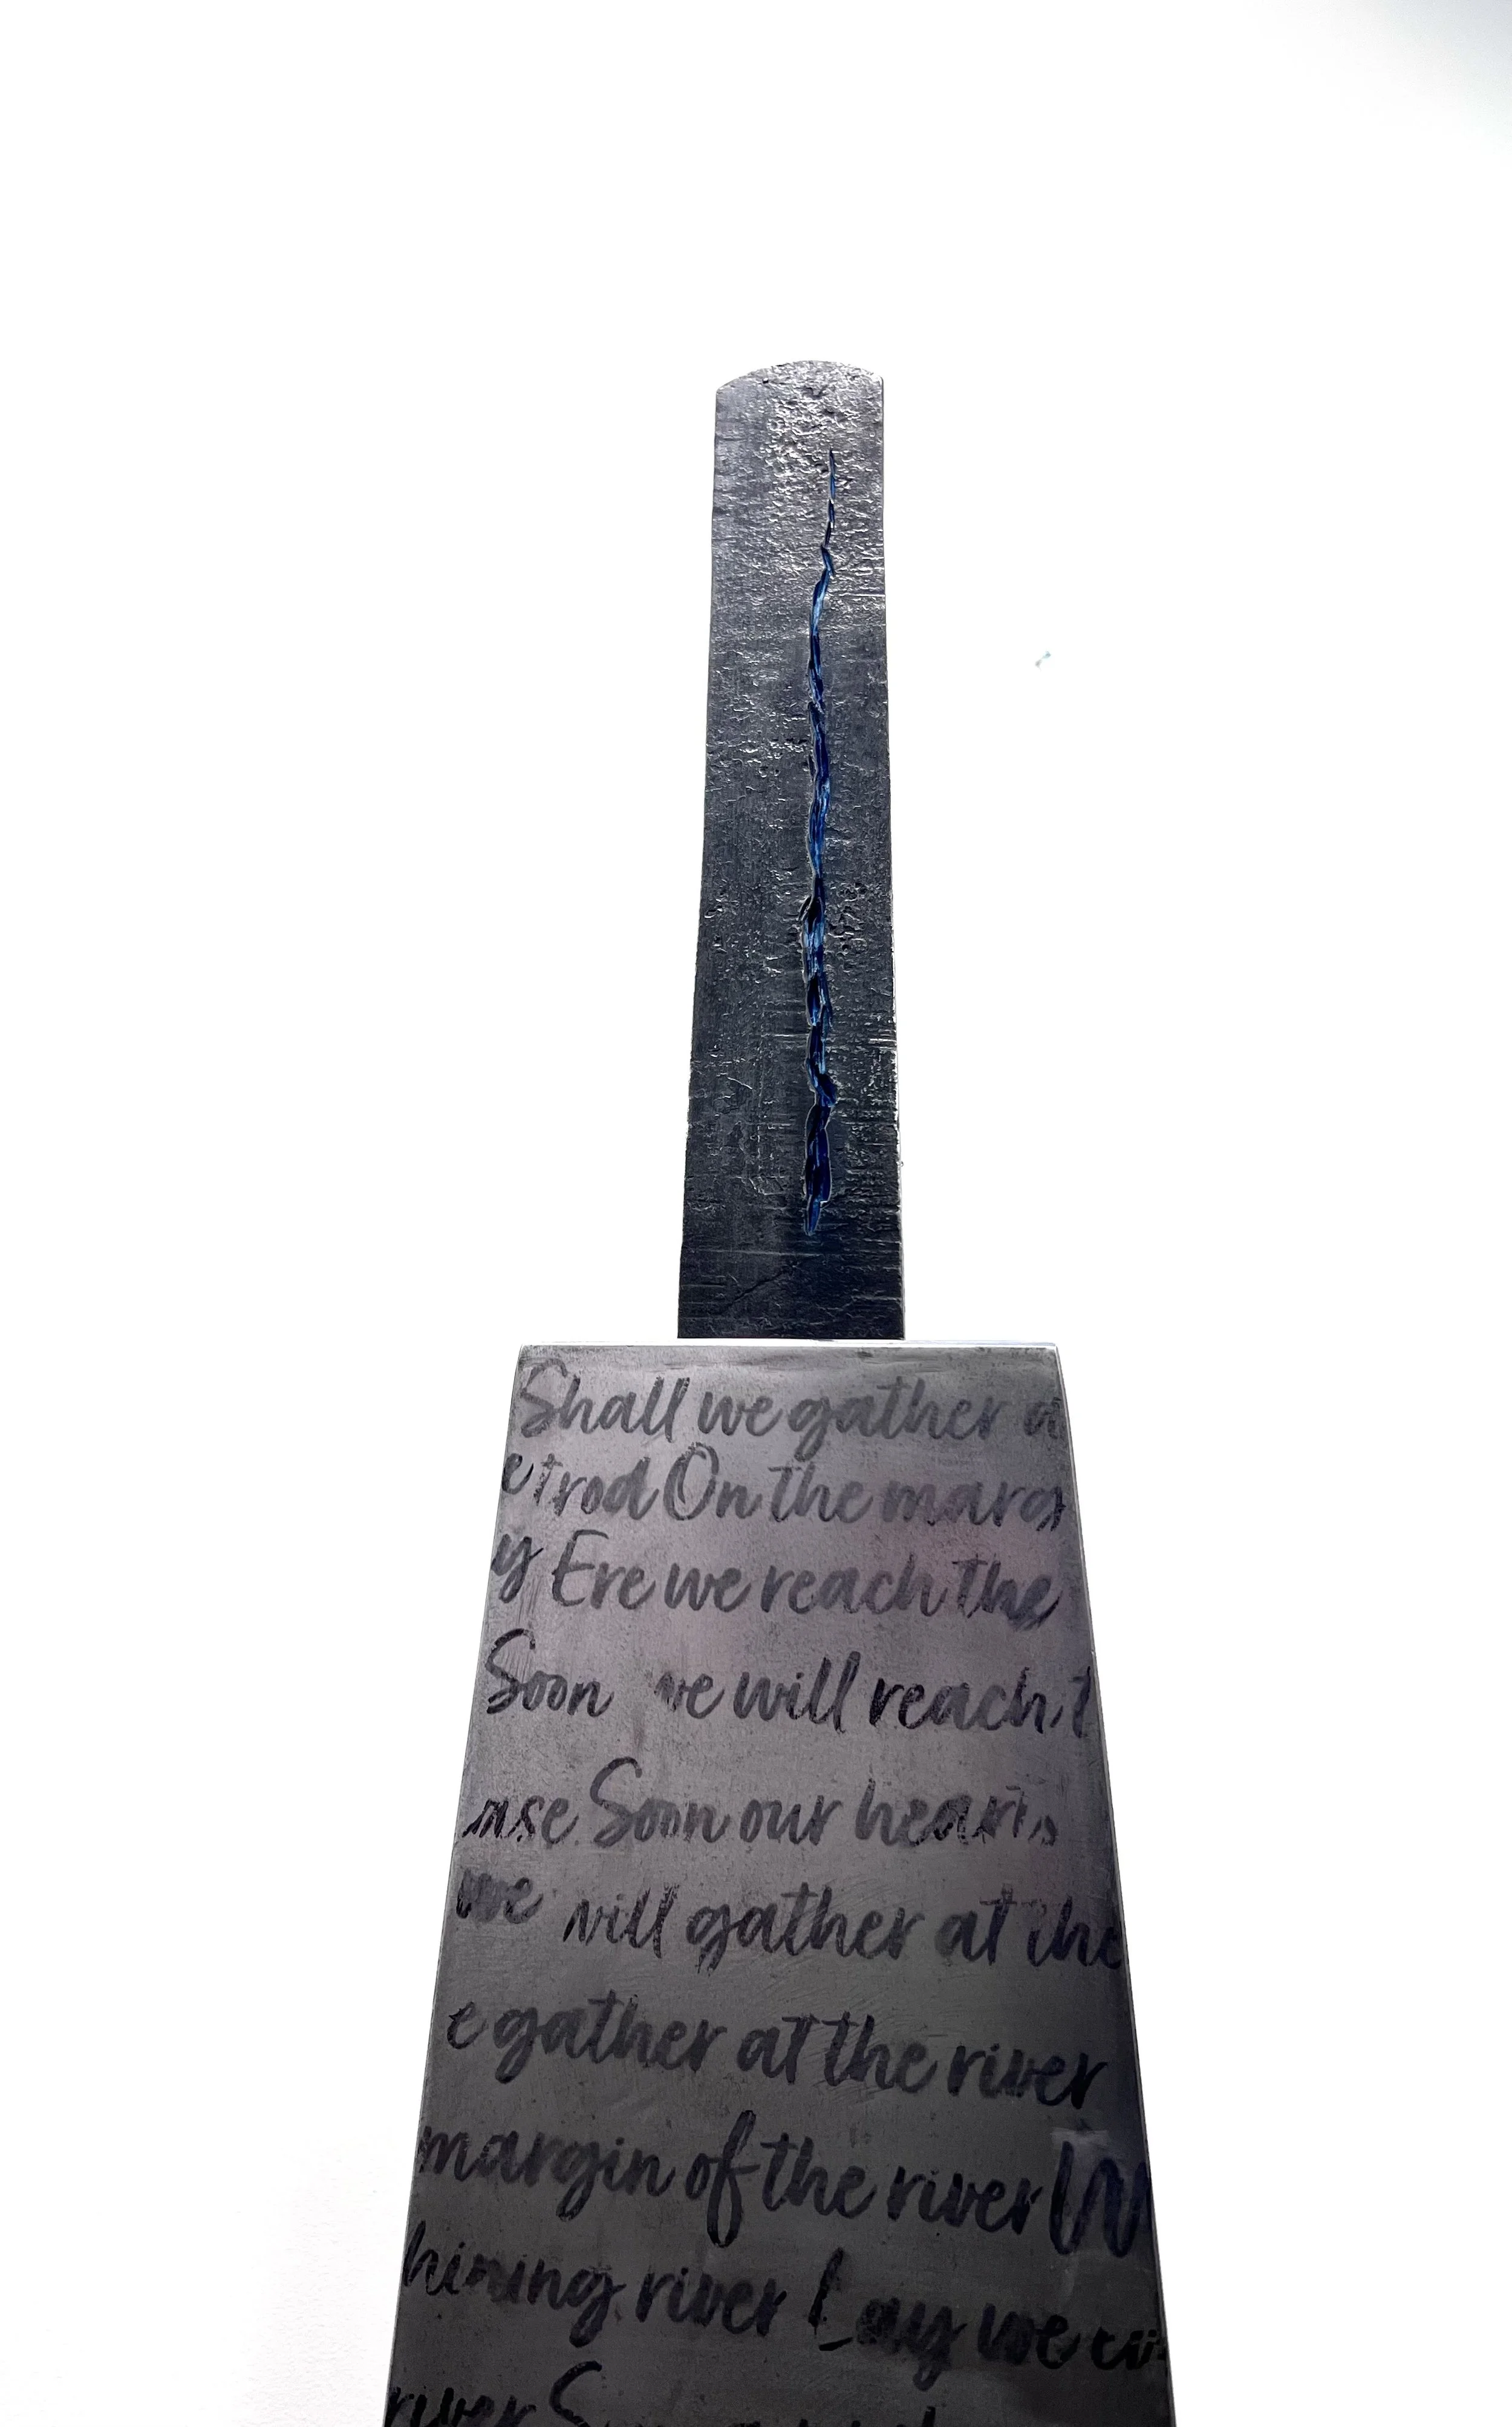 Shall we gather a
e trod On the marg
y Ere we reach the
Soon we will reach t
ase Soon our hearts
we will gather at the
e gather at the river
margin of the river W
hining river Lay we
river